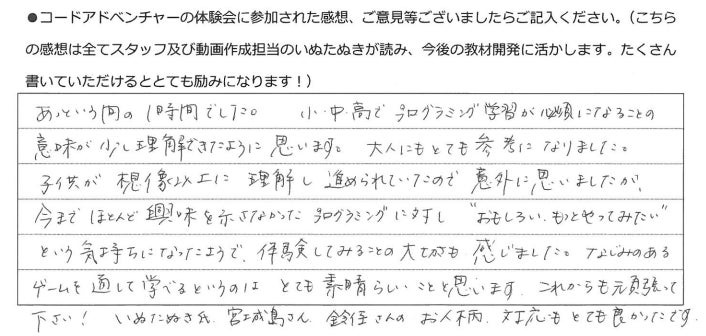 ●コードアドベンチャーの体験会に参加された感想、ご意見等ございましたらご記入ください。（こちら
の感想は全てスタッフ及び動画作成担当のいぬたぬきが読み、今後の教材開発に活かします。たくさん
書いていただけるととても励みになります！）
あっという間の1時間でした。 小・中・高でプログラミング学習が必須になることの
意味が少し理解できたように思います。大人にもとても参考になりました。
子供が想像以上に理解し進められていたので意外に思いましたが、
今までほとんど興味を示さなかったプログラミングに対し"おもしろい、もっとやってみたい"
という気持ちになったようで、体験してみることの大切さも感じました。なじみのある
ゲームを通して学べるというのはとても素晴らしいことと思います。これからも頑張って
下さい！ いぬたぬき氏、宮城島さん、さんのお人柄、対応もとても良かったです。